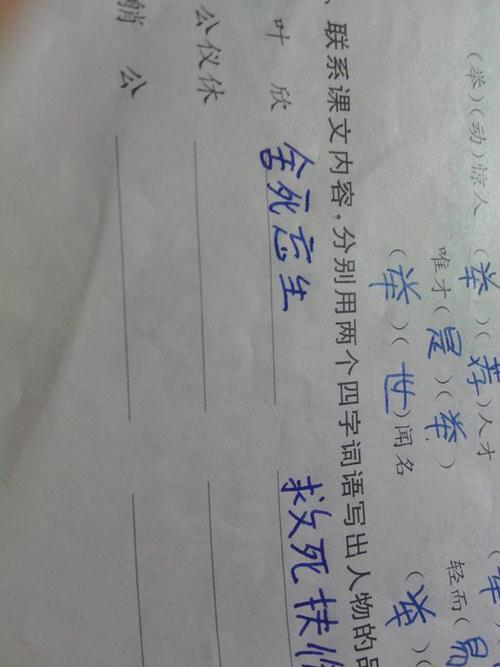 (举)(动)惊人 (举)(荐)人才
唯才(是)(举) 轻而(易
(举)(世)闻名 (举)(
、联系课文内容,分别用两个四字词语写出人物的品
叶 欣 舍死忘生 救死扶
公仪休
公